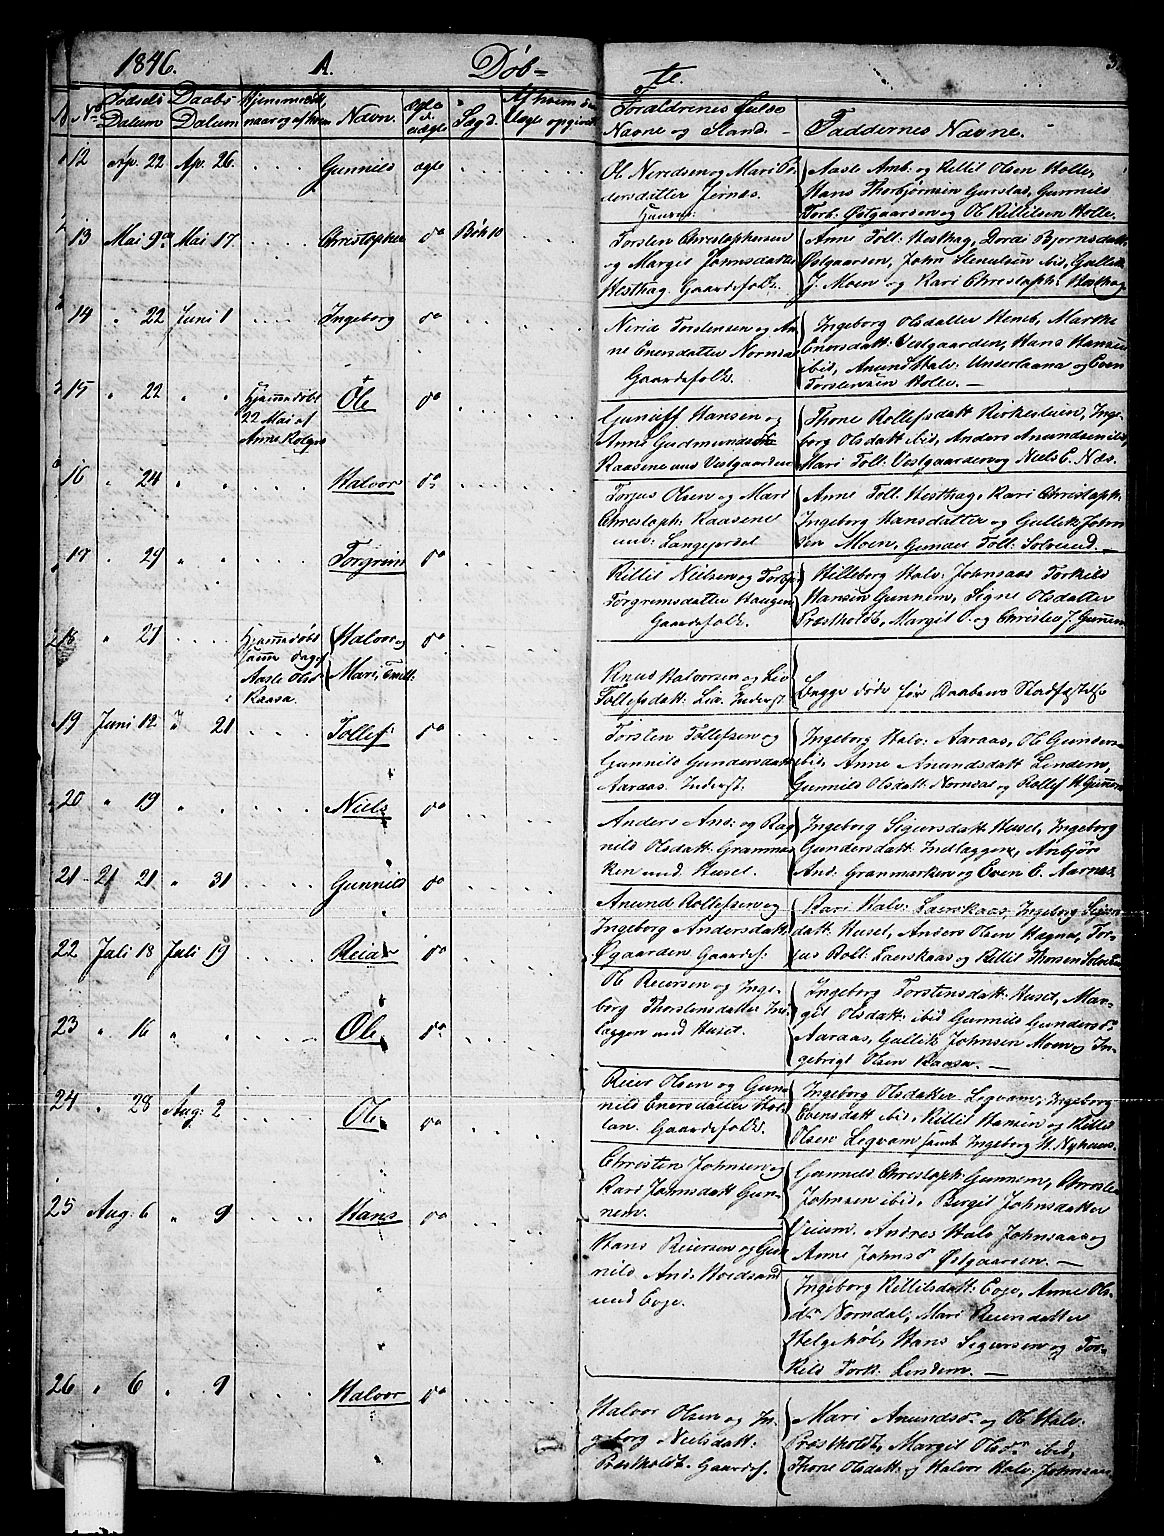 1846. A. Døb= te. 3
No Fødsels Datum Daabs Datum Hjemmedøbt naar og af hvem Navn. Ægte el. uægte Sogd. Af hvem den Uægte opgivet Foræld­renes fulde Navne og Stand. Faddernes Navne.
12 Ap. 22 Ap. 26. Gunnild ægte
Ol. Neridsen og Mari Pe-
dersdatter Jernes.
Huusm:
Aasle Amb. og Kittil Olsen Holte,
Hans Thorbjørnsen Gurstad, Gunnild
Torb. Østgaarden og Ol Kittilsen Holte.
13 Mai 9de Mai 17 Christopher do Böh 10
Torsten Christophersen
og Margit Johnsdatter
Hesthag. Gaardefolk.
Anne Toll: Hesthag, Dordi Bjornsdatt:
Østgaarden, John Stenulsen ibid, Gullik
J. Moen og Kari Christoph: Hesthag
14 " 22 Juni 1 Ingeborg do
Nirid Torstensen og An
ne Enersdatter Nornsa
Gaardefolk.
Ingeborg Olsdatter Henib, Marthe
Enersdatt: Vestgaarden, Hans Hansen
ibid, Anund Halv: Underlaana og Even
Torstensen Holte. —
15 " 22 " " Hjemmedøbt
22 Mai af
Anne Rolgrs
Ole do
Gunulf Hansen og
Anne Gudmundsdr
Raasene uns Vestgaarden
Thone Rollefsdatt Kirkesteien, Inge-
borg Olsdatt ibid, Anders Anundsen ibid,
Mari Toll: Vestgaarden og Niels E. Næs.
16 " 24 " " Halvor do
Torjus Olsen og Mari
Christoph: Raasene
und: Langejordet
Anne Toll: Hesthag, Kari Christoph:
Ingeborg Hansdatter og Gullik John-
sen Moen, Gunder Toll: Solverud. —
17 " 24 " " Torgrim do
Kittil Nielsen og Torbj
Torgrimsdatter Haugen
Gaardefolk.
Hilleborg Halv: Johnsaas Torkild
Hansen Gunnem, Signe Olsdatter
Præstholdt, Margit O. og Christen J. Gunnem
18. " 27 Hjemmedøbt
samme dag af
Aasle Olsd:
Raasa
Halvor og
Mari, Tvill:
do
Knud Halvorsen og Liv
Tollefsdatt: Lia. Inderst.
Begge døde før Daabens Stadfæstelse
19 Juni 12 J 21 Tollef do
Torsten Tollefsen og
Gunnild Gundersdatt
Aaraas. Inderst.
Ingeborg Halv: Aaraas, Ole Gunders:
ibid, Anne Anundsdatt Lindem,
Gunnild Olsdatt: Norndal og Rollef H. Gunnem
20 " 19 " " Niels do
Anders And: og Rag
nild Olsdatt: Granmar
ken und. Huset.
Ingeborg Sigursdatt Huset, Ingeborg
Gundersdatt: Indlaggen, Anbjør
And: Granmarken og Even E. Aarnes.
21 21 21 " 31 Gunnild do
Anund Rollefsen og
Ingeborg Andersdatt:
Øgaarden Gaardef:
Kari Halv: Laerskaas, Ingeborg Sigurs-
datt: Huset, Anders Olsen Hagna, Tor-
jus Roll: Laerskaas og Kittil Thorsen Solverud
22 Juli 18 Juli 19 Reiar do
Ol Reiersen og Inge-
borg Thorstensdatter Ind
laggen und Huset.
Ingeborg Torstensdatt: Huset, Mar-
git Olsdatt: ibid Gunnild Gundersdr
Aaraas, Gullik Johnsen Moen og In-
gebrigt Olsen Raasa. —
23 " 16 " " Ole do
Reier Olsen og Gun-
nild Enersdatter Hol-
tan. Gaardefolk.
Ingeborg Olsdatter Legvam, Ingeborg
Evensdatt ibid, Kittil Hansen og Kittil
Olsen Legvam samt Ingeborg H. Nyhuus.
24 " 28 Aug: 2 Ole do
Christen Johnsen og
Kari Johnsdatt Gun-
nem.
Gunnild Christoph: Gunnem, Christen
Johnsen ibid, Bergit Johnsdatter
Veium, Andres Halv Johnsaas og
Anne Johnsdr Østgaarden. —
25 Aug: 6 " 9 Hans do
Hans Reiersen og Gun
nild And: Hvedsand
und Eoge.
Ingeborg Kittilsdatt: Eoge, Anne Ols-
dr Norndal, Mari Reiersdatter
Helgehøl, Hans Sigursen og Tor-
kild Tork: Lindem. —
26 " 6 " 9 Halvor do
Halvor Olsen og In-
geborg Nielsdatt:
Præstholdt. Gaardef.
Mari Anundsdr og Ol Halv:
Præstholdt, Margit Olsdr ibid,
Thone Olsdatt: og Halvor Halv: Johnsaas